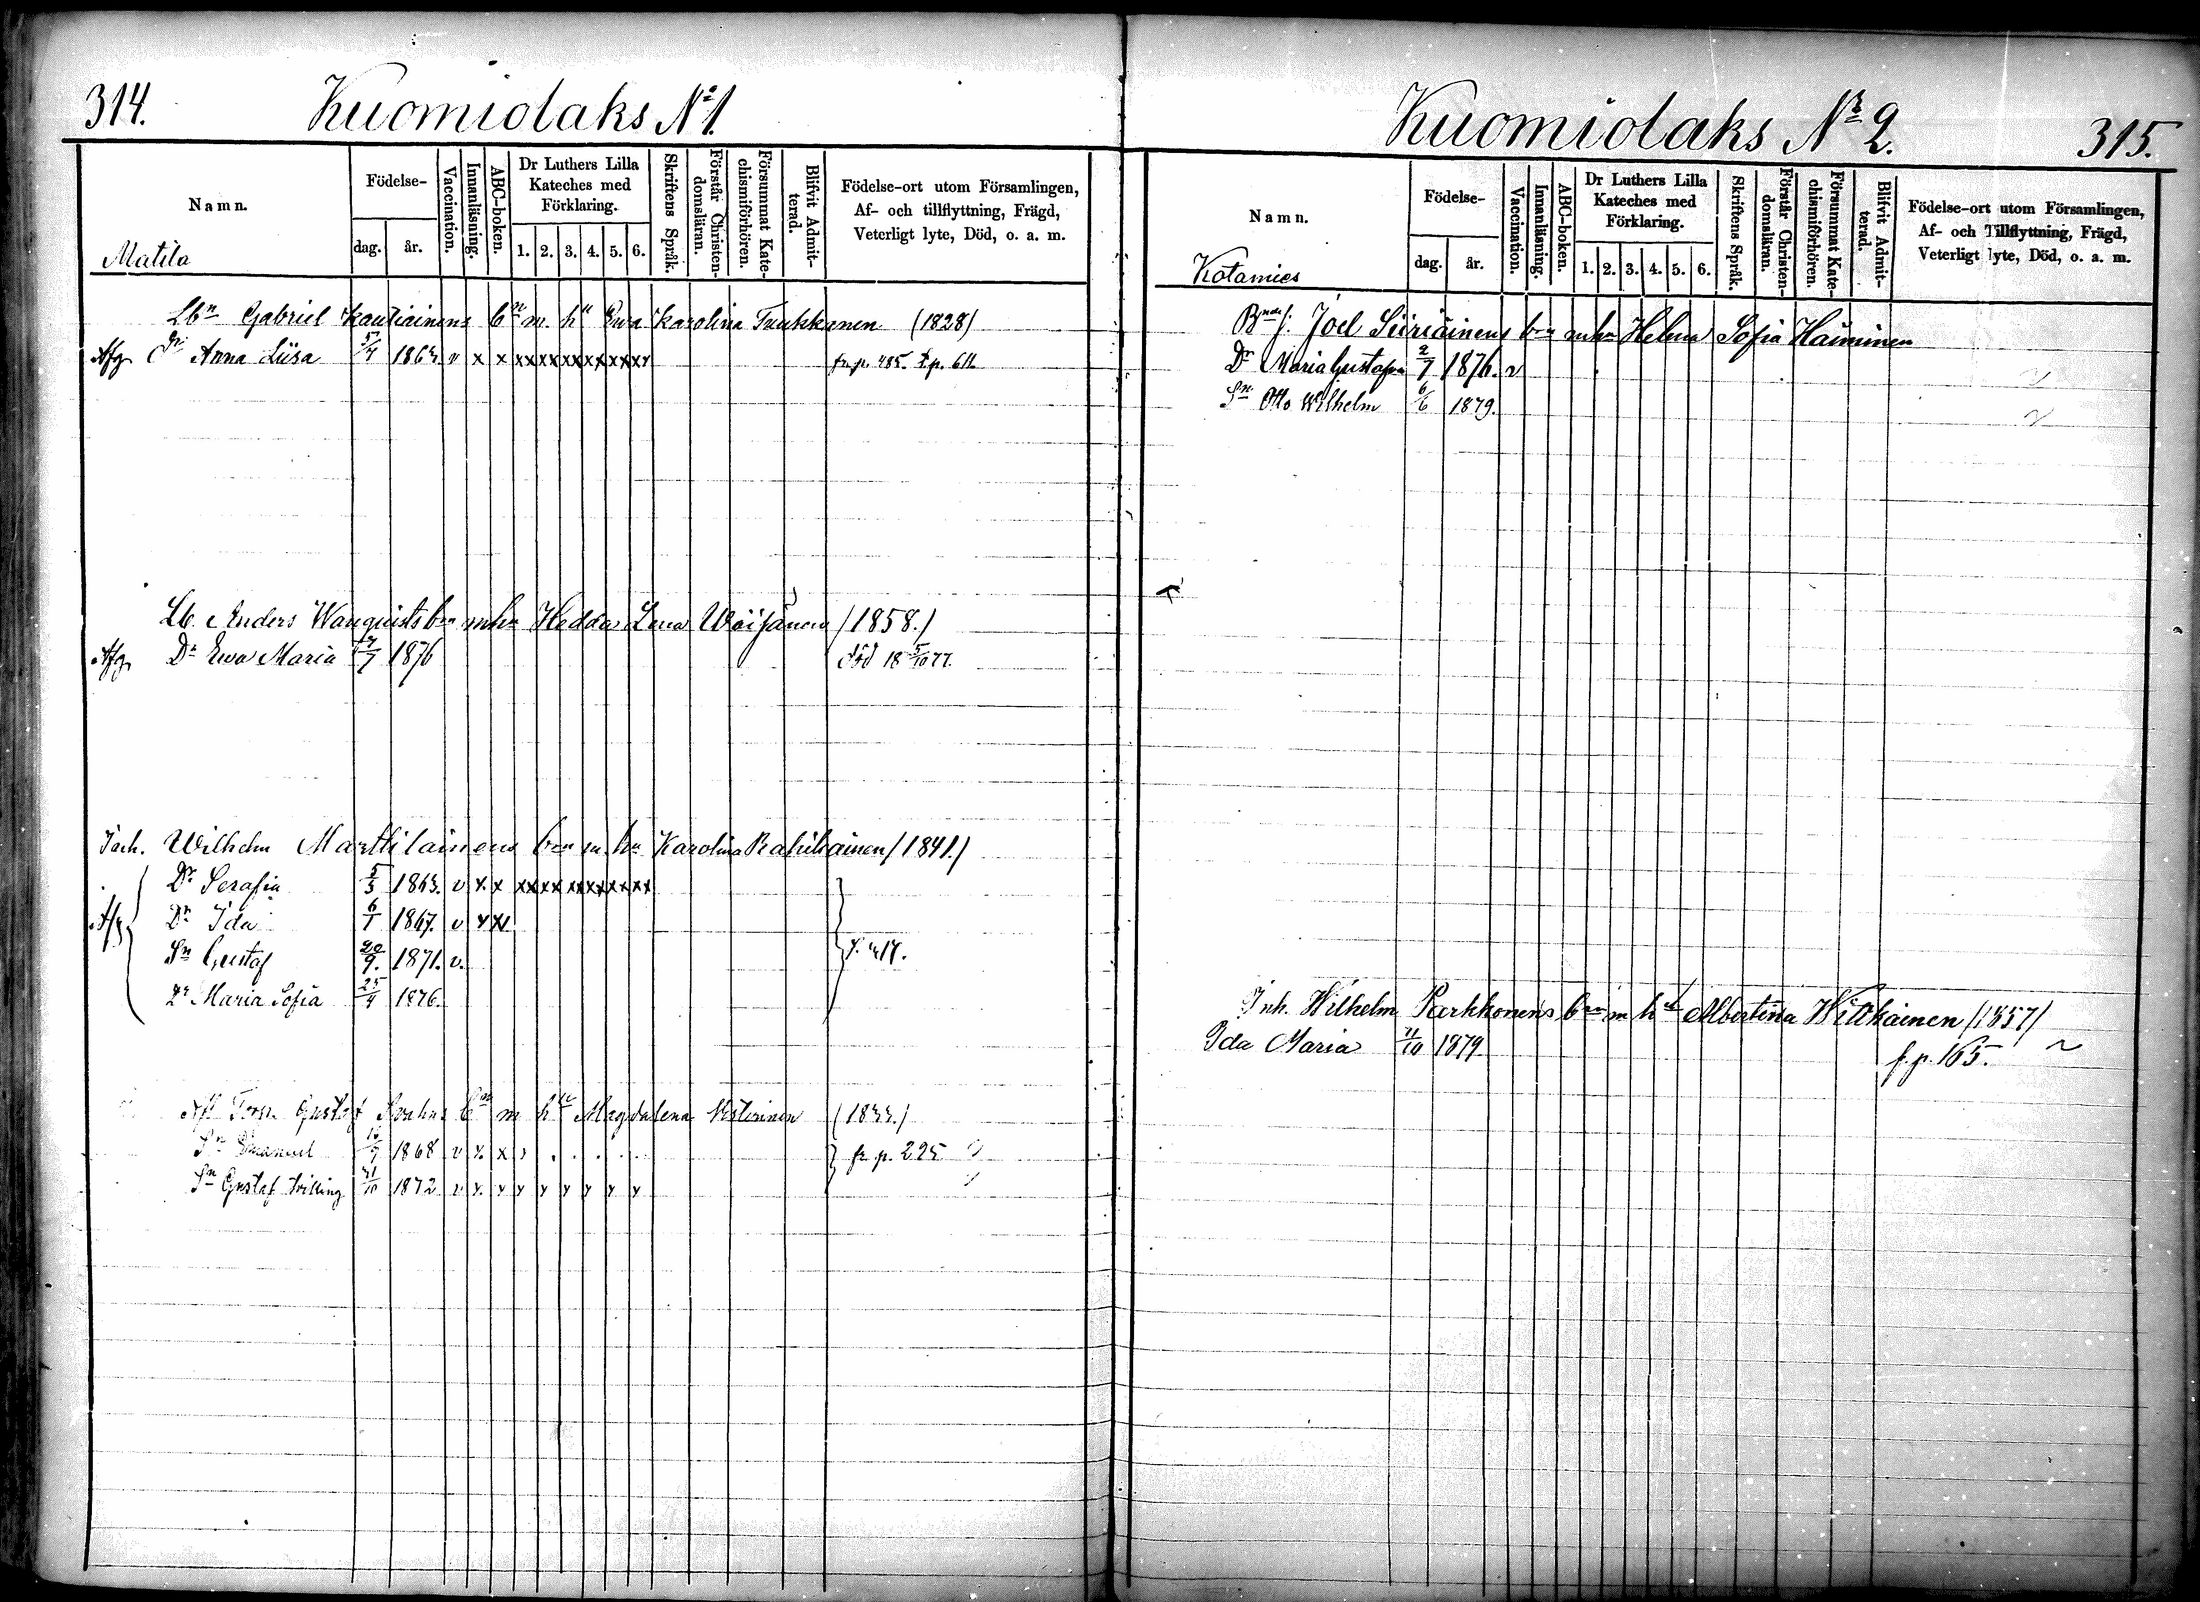 314.
Kuomiolaks No 1.
Namn.
Födelse-
dag.
år.
Vaccination.
Innanläsning.
ABC-boken.
Dr Luthers Lilla
Kateches med
Förklaring.
1. 2. 3. 4. 5. 6.
Skriftens Språk.
Förstår Christen-
domsläran.
Försummat Kate-
chismiförhören.
Blifvit Admit-
terad.
Födelse-ort utom Församlingen,
Af- och tillflyttning, Frägd,
Veterligt lyte, Död, o. a. m.
Matila
Lbn Gabriel Kautiainens bn m. hu Ewa Karolina (1828)
Afg. Anna Liisa 5/4 v x x xxxxxxxxxxxx fr. p. 485.
Lb. Anders Wanquists brn mhu Hedda Lena Wäijänen (1858.)
Afg. Dr Ewa Maria 1876 död 18 5/10 77.
Inh. Wilhelm Marttilainens brn m. hu Karolina (1841.)
Dr Serafia 5/3 1863. v x x xxxx xxxxxxxx
Afg. Dr Ida 6/1 1867. v x x
Sn Gustaf 20/9. 1871. v.
Dr Maria Sofia 25/4 1876.
Gustaf bn m hu Magdalena
Sn Emanuel 1868 v x. x fr. p. 225
Sn Gustaf tvilling 1872 v x. x x x x x x x
Kuomiolaks No 2.
315.
Namn.
Födelse-
dag.
år.
Vaccination.
Innanläsning.
ABC-boken.
Dr Luthers Lilla
Kateches med
Förklaring.
1. 2. 3. 4. 5. 6.
Skriftens Språk.
Förstår Christen-
domsläran.
Försummat Kate-
chismiförhören.
Blifvit Admit-
terad.
Födelse-ort utom Församlingen,
Af- och Tillflyttning, Frägd,
Veterligt lyte, Död, o. a. m.
Kotamies
Joel Siiriäinens brn mhu Helena Sofia Häiminen
Dr Maria Gustafva 2/7 1876. v
Sn Otto Wilhelm 6/6 1879.
Inh. Wilhelm Parkkonens brn m hu Albertina Witikainen (1857)
Ida Maria 11/10 1879. f. p. 165.